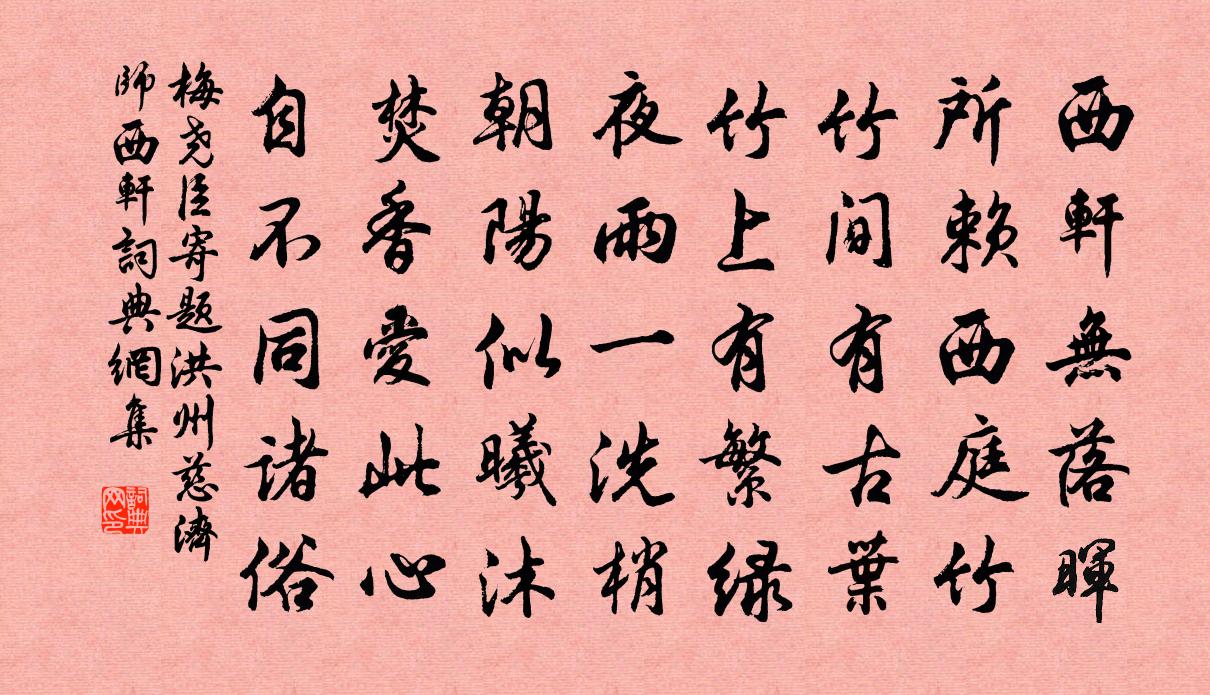 西軒無落暉
所賴西庭竹
竹间有古葉
竹上有繁绿
夜雨一洗梢
朝陽似曦沐
焚香愛此心
自不同諸俗
梅尧臣寄题洪州慈濟
師西軒詞典網集
詞典网印